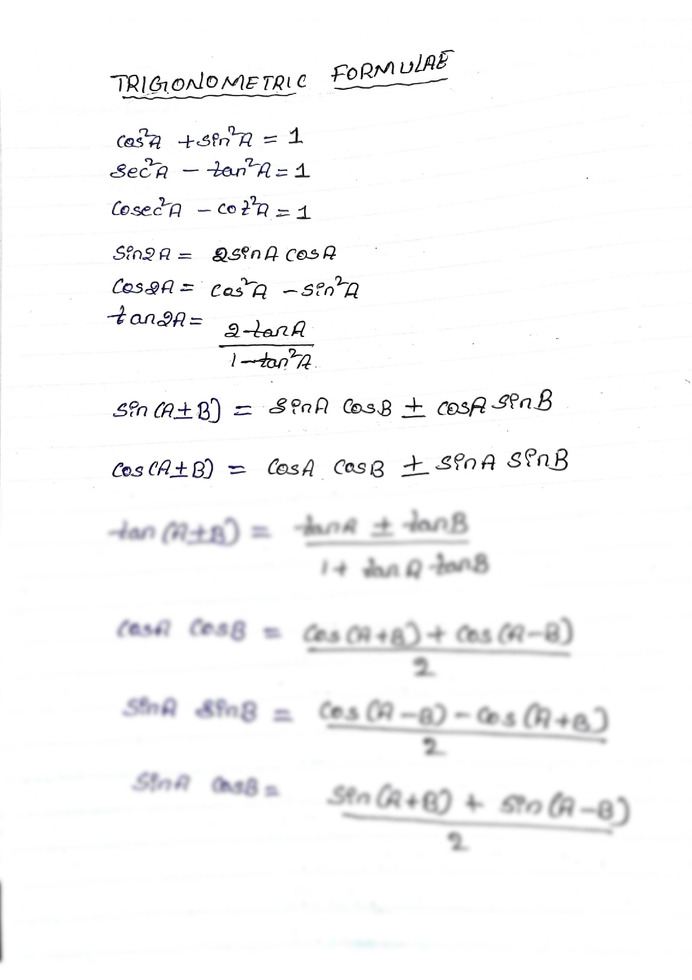 TRIGONOMETRIC FORMULAE
cos²A + sin²A = 1
sec²A - tan²A = 1
cosec²A - cot²A = 1
sin2A = 2sinA cosA
cos2A = cos²A - sin²A
tan2A = 2tanA / 1-tan²A
sin(A±B) = sinA cosB ± cosA sinB
cos(A±B) = cosA cosB ± sinA sinB
tan(A±B) = tanA ± tanB / 1+ tanA tanB
cosA cosB = cos(A+B) + cos(A-B) / 2
sinA sinB = cos(A-B) - cos(A+B) / 2
sinA cosB = sin(A+B) + sin(A-B) / 2